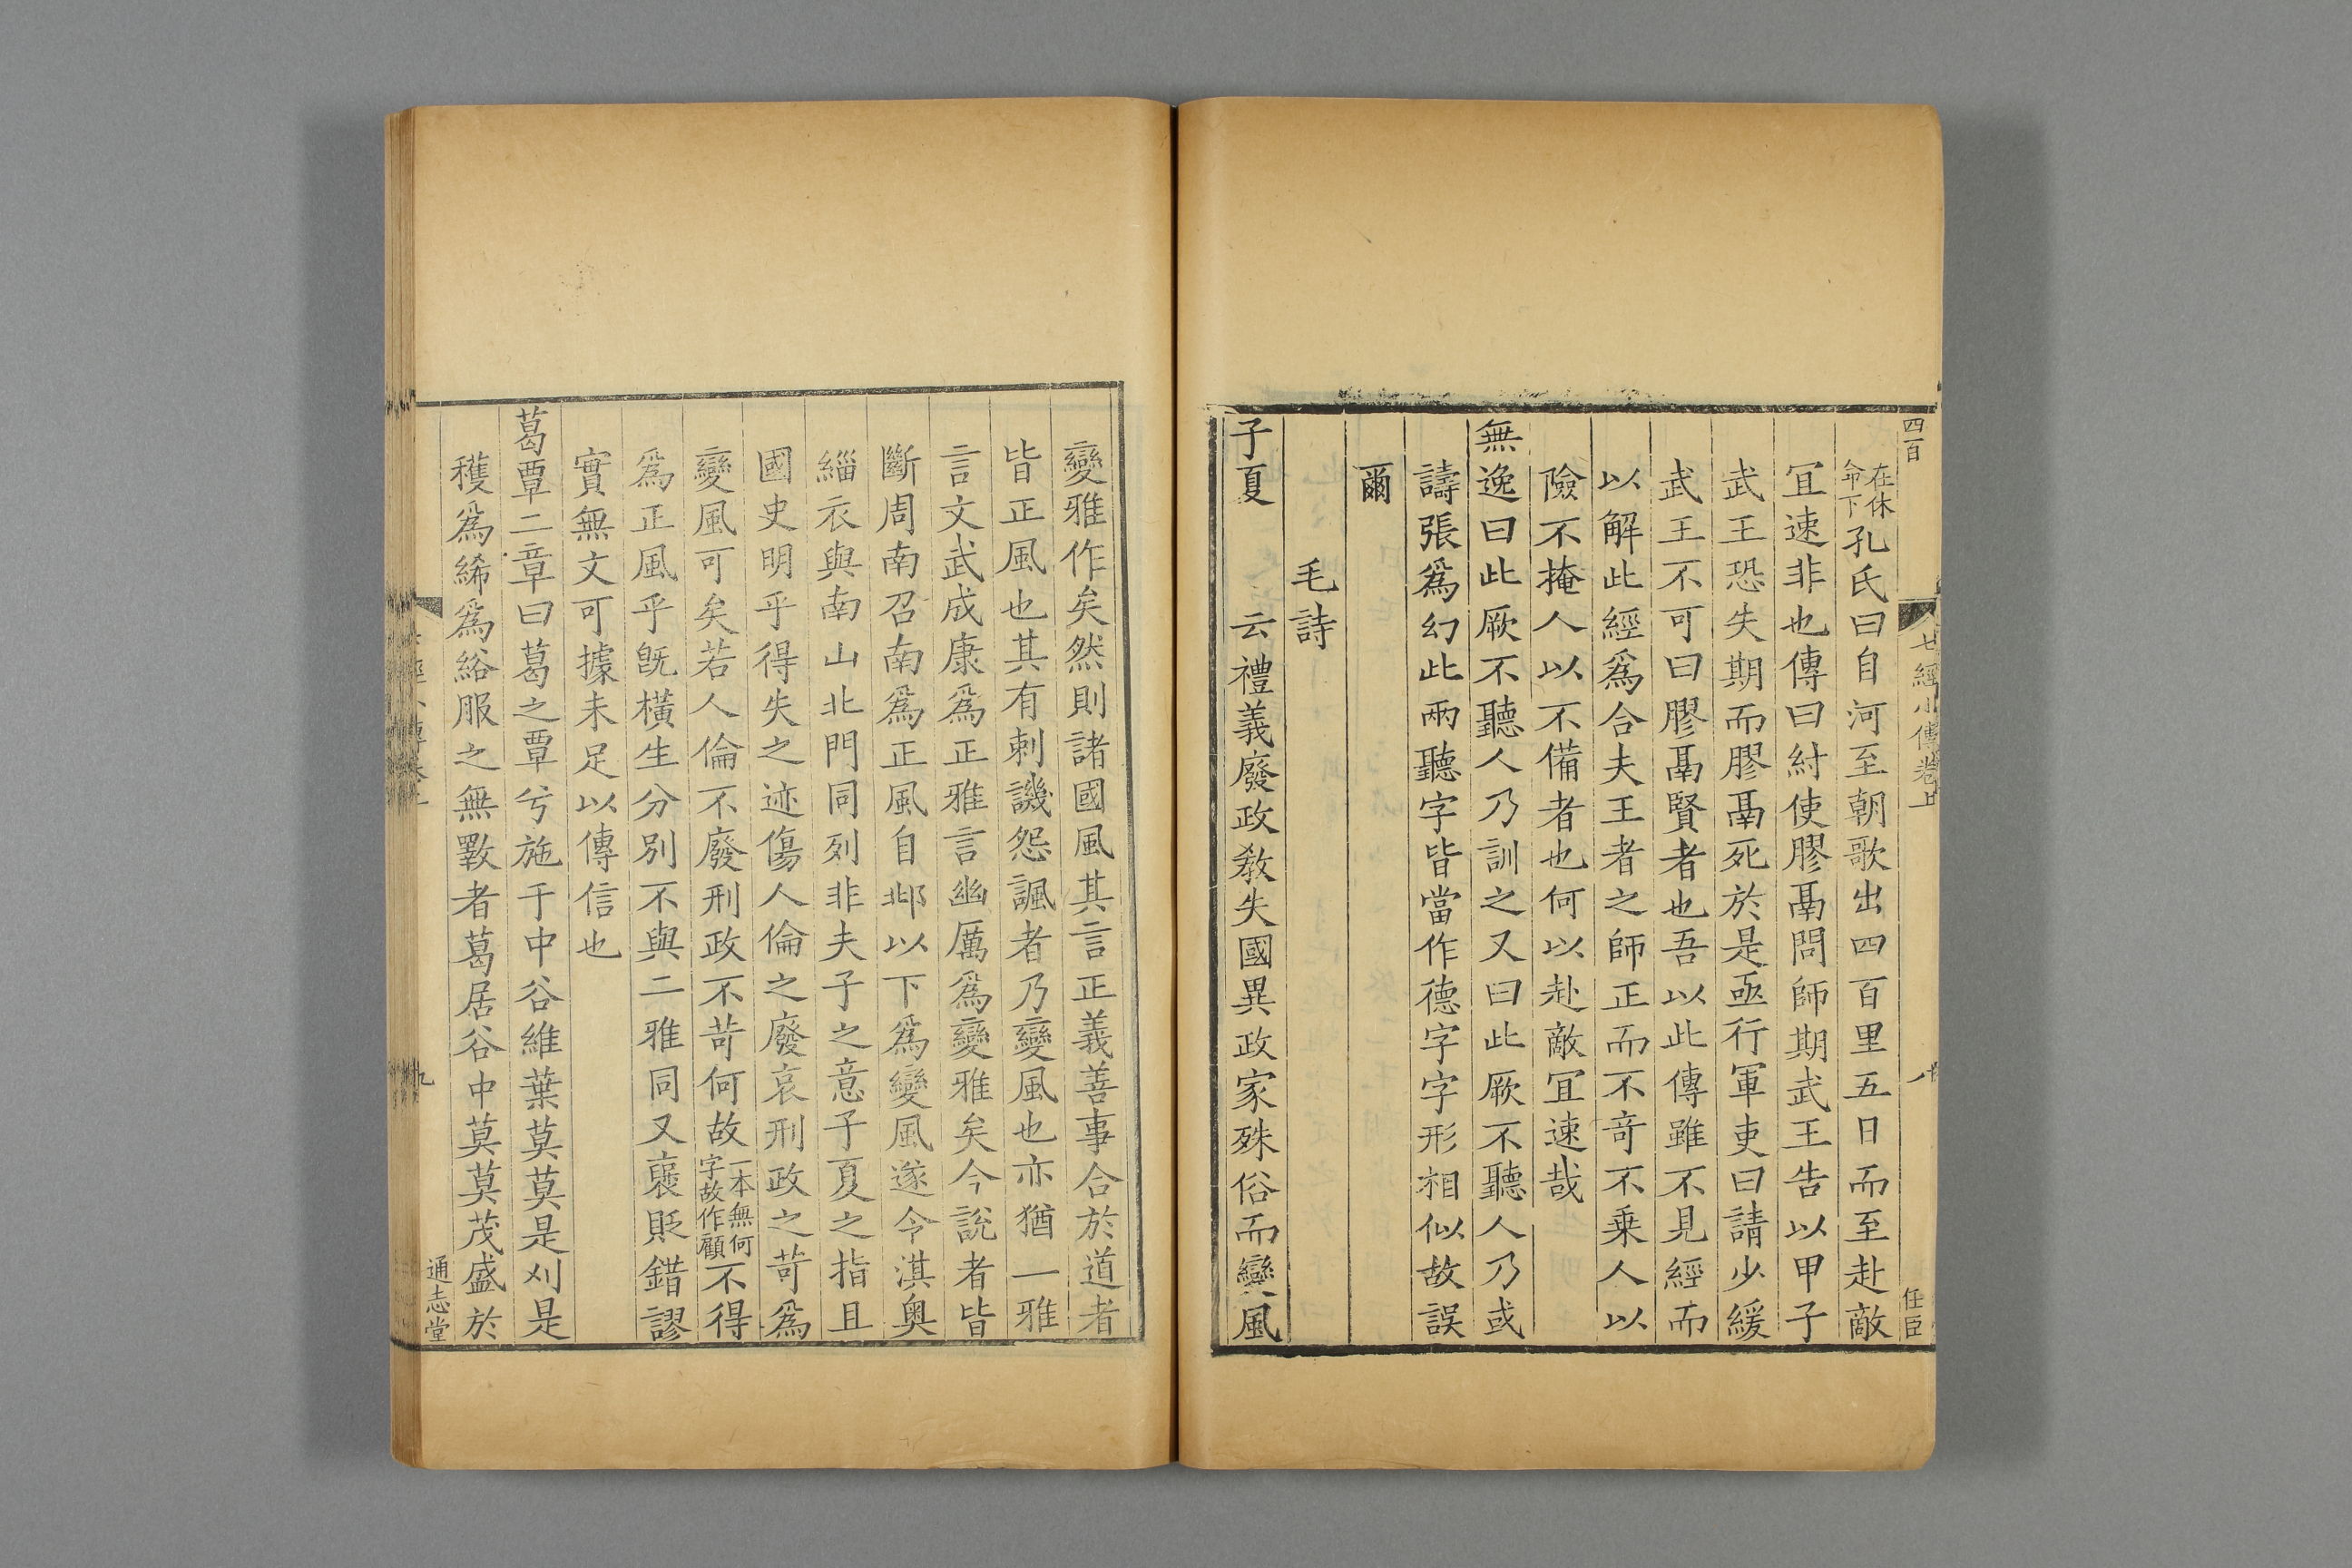 四百
七經小傳卷上
任臣
在休命下孔氏曰自河至朝歌出四百里五日而至赴敵
冝速非也傳曰紂使膠鬲問師期武王告以甲子
武王恐失期而膠鬲死於是亟行軍吏曰請少緩
武王不可曰膠鬲賢者也吾以此傳雖不見經而
以解此經爲合夫王者之師正而不竒不乗人以
險不掩人以不備者也何以赴敵冝速哉
無逸曰此厥不聽人乃訓之又曰此厥不聽人乃或
譸張爲幻此兩聽字皆當作德字字形相似故誤
爾
毛詩
子夏 云禮義廢政敎失國異政家殊俗而變風
變雅作矣然則諸國風其言正義善事合於道者
皆正風也其有刺譏怨諷者乃變風也亦猶一雅
言文武成康爲正雅言幽厲爲變雅矣今說者皆
斷周南召南爲正風自邶以下爲變風遂令淇奧
緇衣與南山北門同列非夫子之意子夏之指且
國史明乎得失之迹傷人倫之廢哀刑政之苛爲
變風可矣若人倫不廢刑政不苛何故一本無何字故作顧不得
爲正風乎旣橫生分別不與二雅同又襃貶錯謬
實無文可據未足以傳信也
葛覃二章曰葛之覃兮施于中谷維葉莫莫是刈是
穫爲絺爲綌服之無斁者葛居谷中莫莫茂盛於
九
通志堂